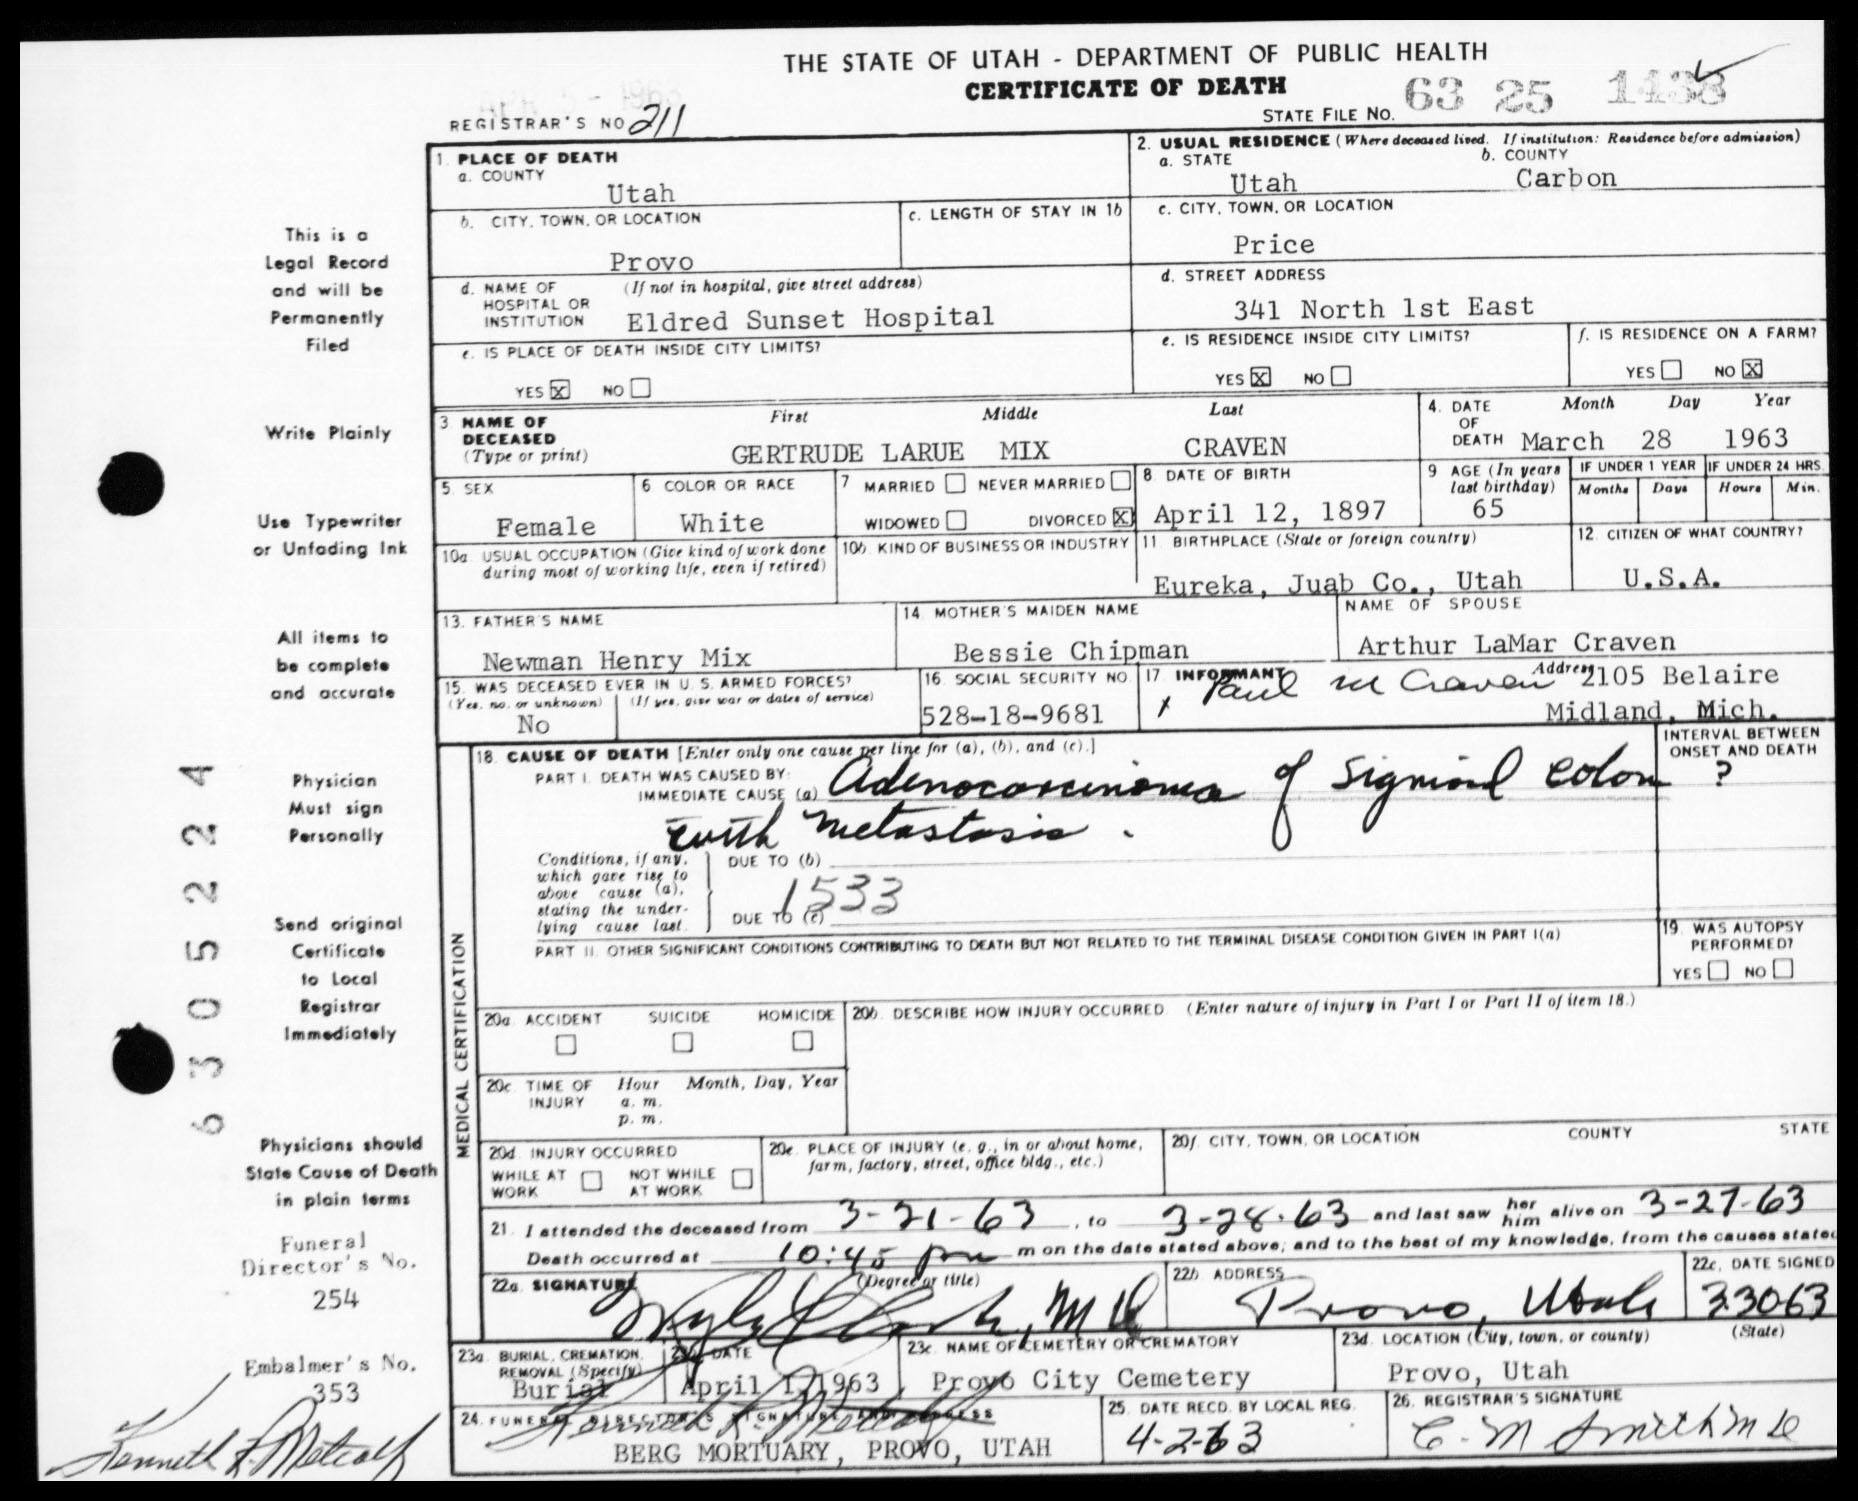 THE STATE OF UTAH - DEPARTMENT OF PUBLIC HEALTH
CERTIFICATE OF DEATH
STATE FILE NO. 63 25 1438
REGISTRAR'S NO 211
1. PLACE OF DEATH
a. COUNTY
Utah
2. USUAL RESIDENCE (Where deceased lived. If institution: Residence before admission)
a. STATE
Utah
b. COUNTY
Carbon
b. CITY, TOWN, OR LOCATION
Provo
c. LENGTH OF STAY IN 1b
c. CITY, TOWN, OR LOCATION
Price
d. NAME OF HOSPITAL OR INSTITUTION
(If not in hospital, give street address)
Eldred Sunset Hospital
d. STREET ADDRESS
341 North 1st East
e. IS PLACE OF DEATH INSIDE CITY LIMITS?
YES X NO
e. IS RESIDENCE INSIDE CITY LIMITS?
YES X NO
f. IS RESIDENCE ON A FARM?
YES NO X
3 NAME OF DECEASED
(Type or print)
First Middle Last
GERTRUDE LARUE MIX CRAVEN
4. DATE OF DEATH
Month Day Year
March 28 1963
5. SEX
Female
6 COLOR OR RACE
White
7 MARRIED NEVER MARRIED
WIDOWED DIVORCED X
8 DATE OF BIRTH
April 12, 1897
9 AGE (In years last birthday)
65
IF UNDER 1 YEAR
Months Days
IF UNDER 24 HRS.
Hours Min.
10a. USUAL OCCUPATION (Give kind of work done during most of working life, even if retired)
10b. KIND OF BUSINESS OR INDUSTRY
11 BIRTHPLACE (State or foreign country)
Eureka, Juab Co., Utah
12. CITIZEN OF WHAT COUNTRY?
U.S.A.
13. FATHER'S NAME
Newman Henry Mix
14. MOTHER'S MAIDEN NAME
Bessie Chipman
NAME OF SPOUSE
Arthur LaMar Craven
15. WAS DECEASED EVER IN U. S. ARMED FORCES?
(Yes, no, or unknown) (If yes, give war or dates of service)
No
16. SOCIAL SECURITY NO.
528-18-9681
17. INFORMANT
x Paul M Craven
Address
2105 Belaire
Midland, Mich.
MEDICAL CERTIFICATION
18. CAUSE OF DEATH [Enter only one cause per line for (a), (b), and (c).]
INTERVAL BETWEEN ONSET AND DEATH
PART I. DEATH WAS CAUSED BY:
IMMEDIATE CAUSE (a) Adenocarcinoma of Sigmoid Colon ?
with metastasis.
Conditions, if any, which gave rise to above cause (a), stating the underlying cause last.
DUE TO (b)
1533
DUE TO (c)
PART II. OTHER SIGNIFICANT CONDITIONS CONTRIBUTING TO DEATH BUT NOT RELATED TO THE TERMINAL DISEASE CONDITION GIVEN IN PART I(a)
19. WAS AUTOPSY PERFORMED?
YES NO
20a. ACCIDENT SUICIDE HOMICIDE
20b. DESCRIBE HOW INJURY OCCURRED. (Enter nature of injury in Part I or Part II of item 18.)
20c. TIME OF INJURY
Hour Month, Day, Year
a. m.
p. m.
20d. INJURY OCCURRED
WHILE AT WORK NOT WHILE AT WORK
20e. PLACE OF INJURY (e. g., in or about home, farm, factory, street, office bldg., etc.)
20f. CITY, TOWN, OR LOCATION COUNTY STATE
21. I attended the deceased from 3-21-63, to 3-28-63 and last saw her him alive on 3-27-63
Death occurred at 10:45 pm m on the date stated above; and to the best of my knowledge, from the causes stated
22a. SIGNATURE (Degree or title)
Clark, M D
22b ADDRESS
Provo, Utah
22c. DATE SIGNED
33063
23a. BURIAL, CREMATION, REMOVAL (Specify)
Burial
23b. DATE
April 1, 1963
23c. NAME OF CEMETERY OR CREMATORY
Provo City Cemetery
23d. LOCATION (City, town, or county) (State)
Provo, Utah
24. FUNERAL DIRECTOR'S SIGNATURE AND ADDRESS
Kenneth L. Metcalf
BERG MORTUARY, PROVO, UTAH
25. DATE RECD. BY LOCAL REG.
4-2-63
26. REGISTRAR'S SIGNATURE
C. M Smith M D
This is a
Legal Record
and will be
Permanently
Filed
Write Plainly
Use Typewriter
or Unfading Ink
All items to
be complete
and accurate
Physician
Must sign
Personally
Send original
Certificate
to Local
Registrar
Immediately
Physicians should
State Cause of Death
in plain terms
Funeral
Director's No.
254
Embalmer's No.
353
Kenneth L. Metcalf
63052224